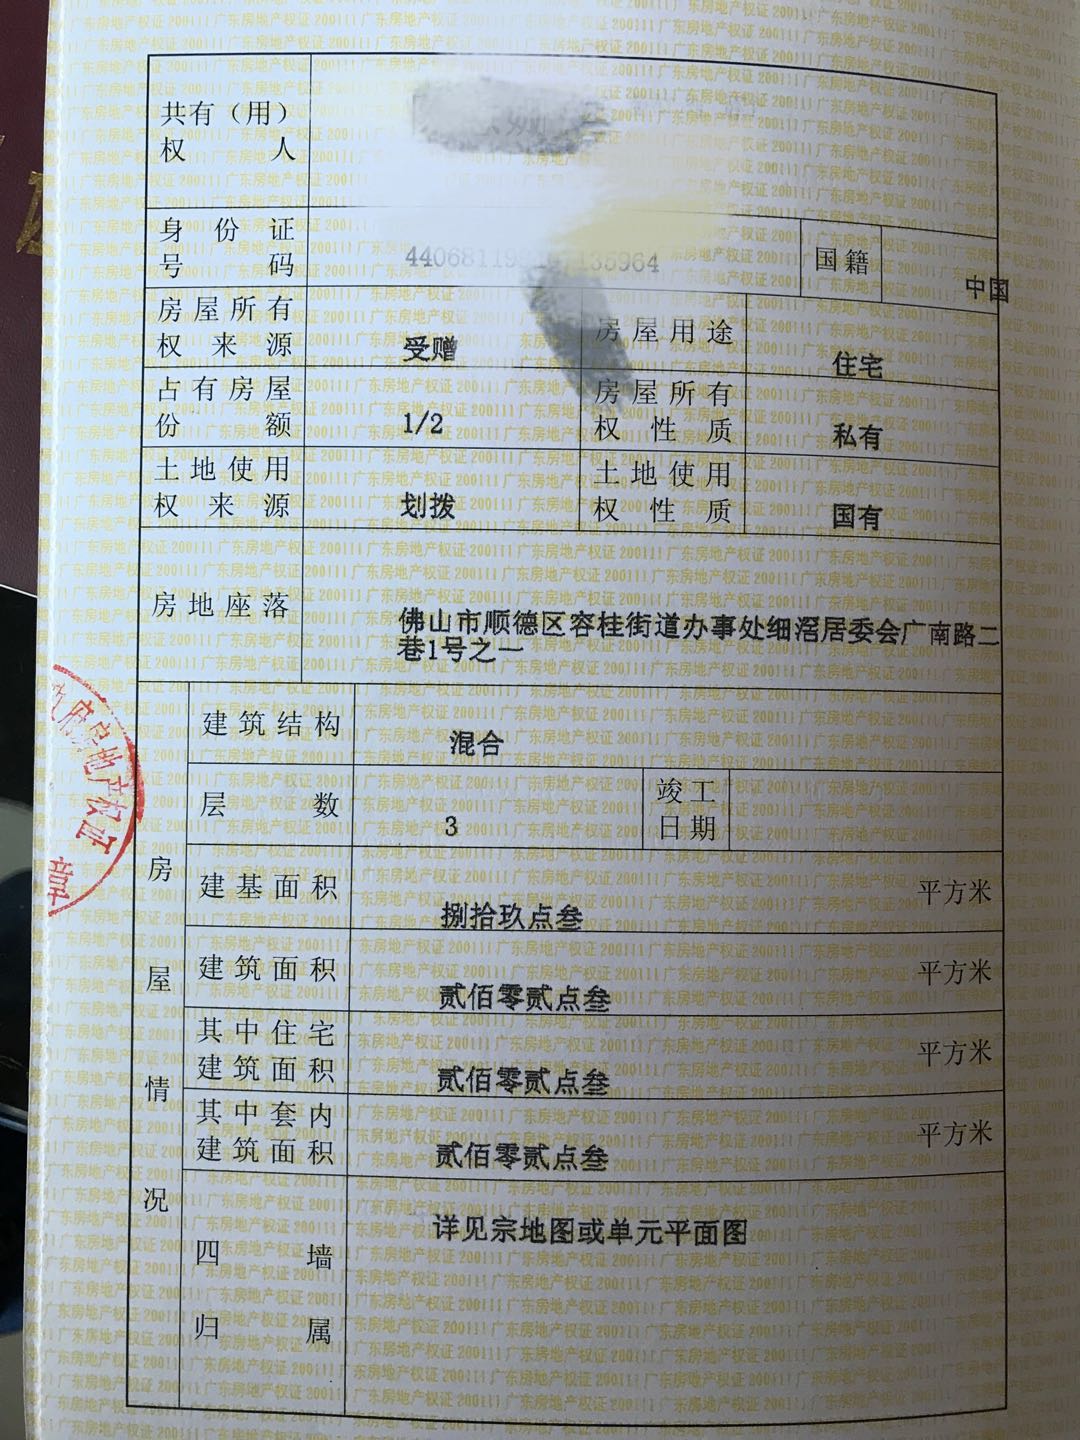 共有（用）
权人
身份证
号码
国籍
中国
房屋所有
权来源
受赠
房屋用途
住宅
占有房屋
份额
1/2
房屋所有
权性质
私有
土地使用
权来源
划拨
土地使用
权性质
国有
房地座落
佛山市顺德区容桂街道办事处细滘居委会广南路二
巷1号之一
房屋情况
建筑结构
混合
层数
3
竣工
日期
建基面积
捌拾玖点叁
平方米
建筑面积
贰佰零贰点叁
平方米
其中住宅
建筑面积
贰佰零贰点叁
平方米
其中套内
建筑面积
贰佰零贰点叁
平方米
四墙
归属
详见宗地图或单元平面图
房地产权证
章
广东房地产权证200111